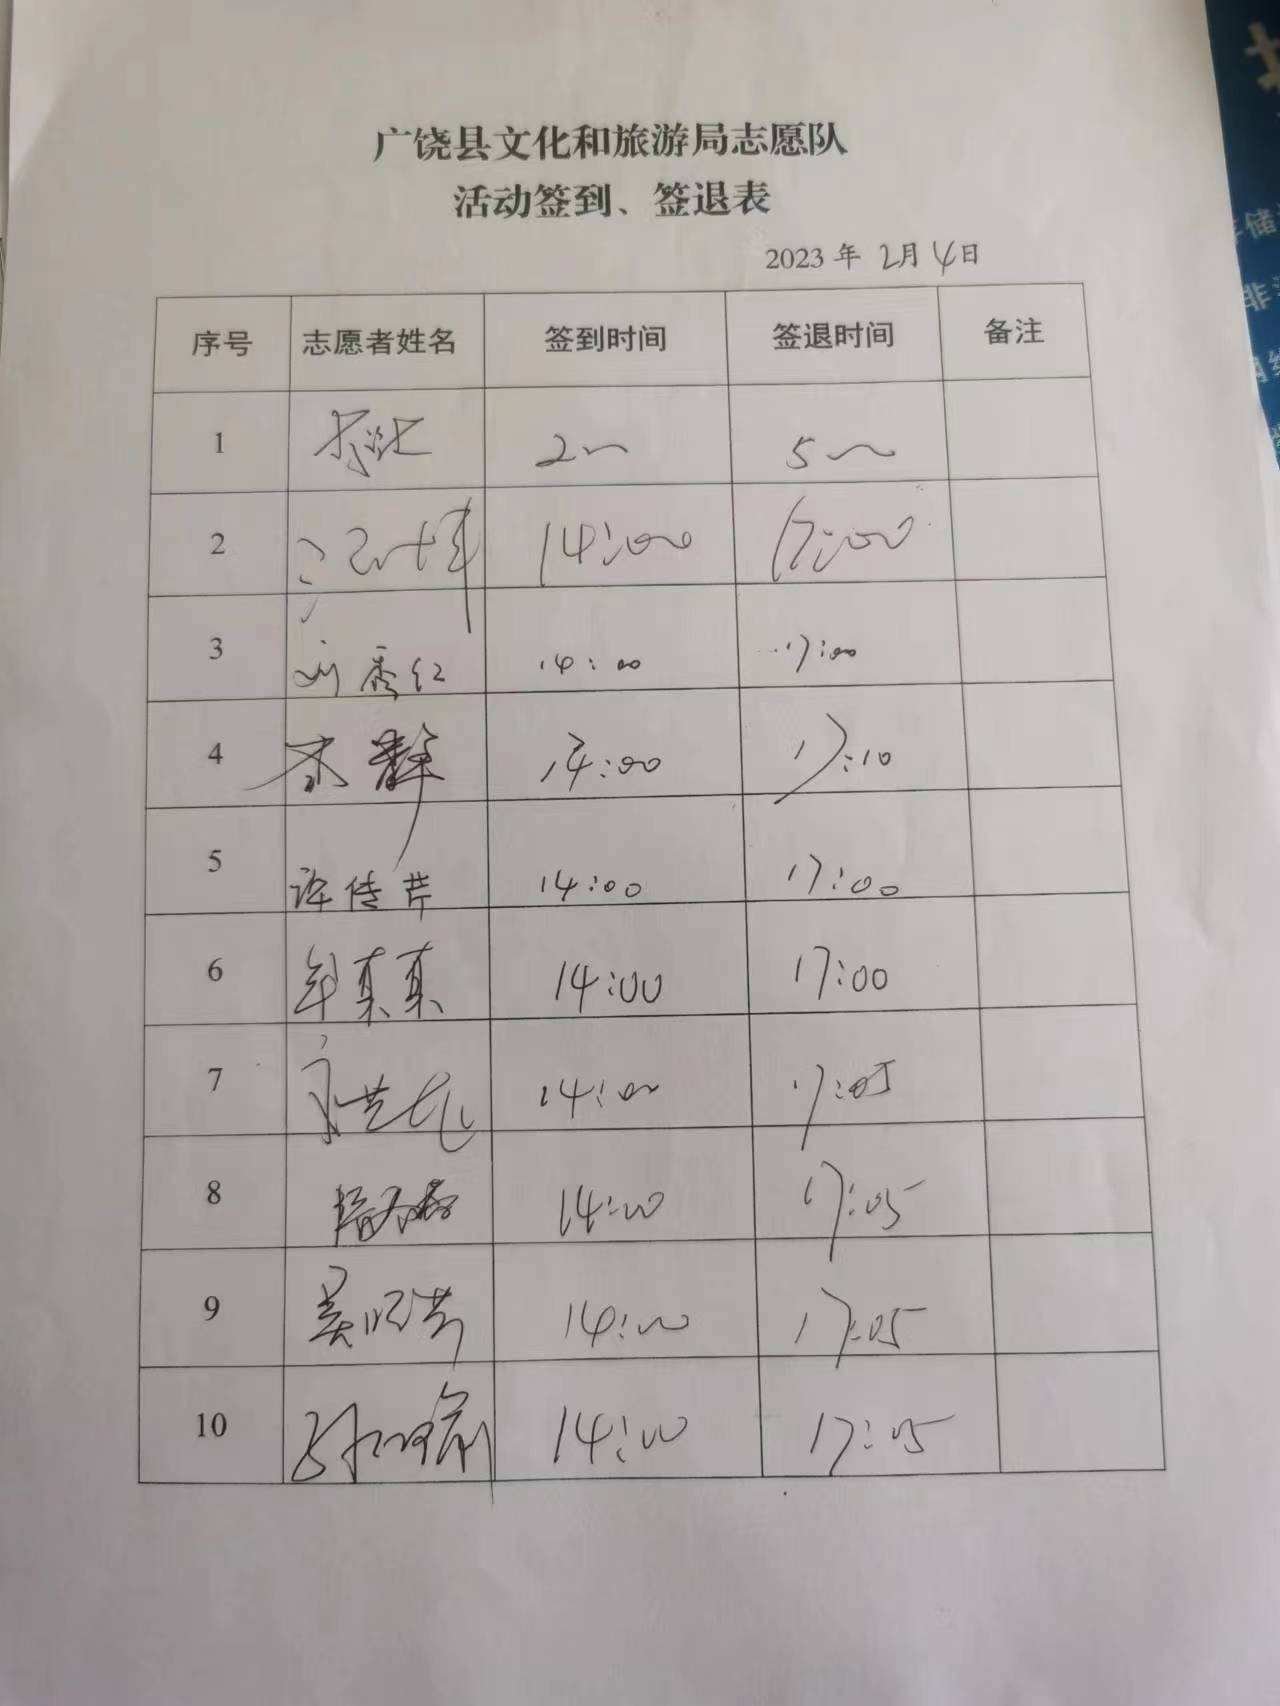 广饶县文化和旅游局志愿队
活动签到、签退表
2023 年 2月 4日
序号 志愿者姓名 签到时间 签退时间 备注
1 2 5
2 14:00 17:00
3 刘秀红 14:00 17:00
4 14:00 17:10
5 许传芹 14:00 17:00
6 牟真真 14:00 17:00
7 14:00 17:05
8 14:00 17:05
9 14:00 17:05
10 14:00 17:05
储
非